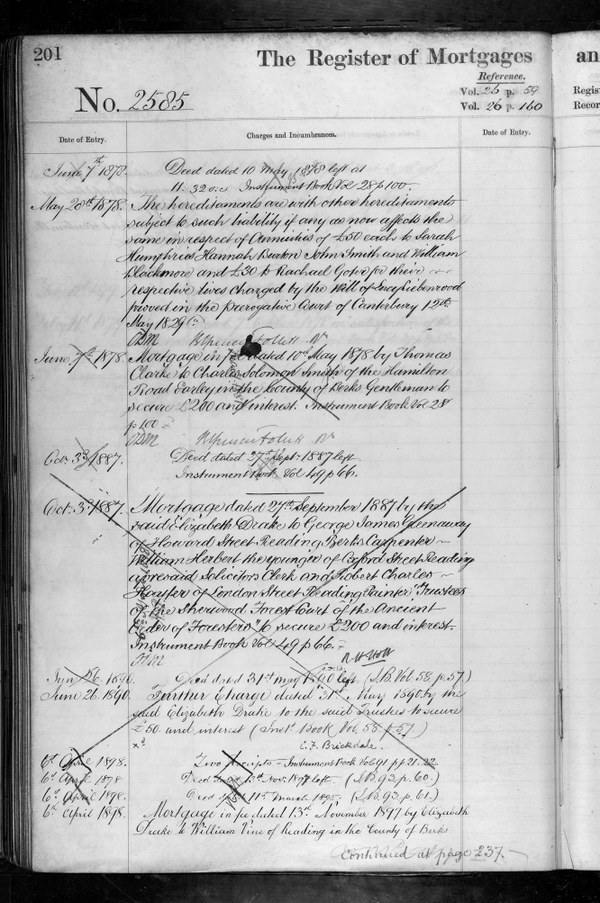 201
The Register of Mortgages an
Reference.
No. 2585
Vol. 25 p. 59
Vol. 26 p. 160
Regis
Recor
Date of Entry.
Charges and Incumbrances.
Date of Entry.
June 7th 1878. Deed dated 10 May 1878 left at
11.32 Instrument Book Vol 28 p 100.
May 28th 1878. The hereditaments are with other hereditaments
subject to such liability if any as now affects the
same in respect of Annuities of £50 each to Sarah
Humphries Hannah Buxton John Smith and William
Blackmore and £30 to Rachael for their
respective lives charged by the Will of
proved in the Prerogative Court of Canterbury 12th
May 1829
June 7th 1878. Mortgage in fee dated 10th May 1878 by Thomas
Clarke to Charles Solomon Smith of the Hamilton
Road Earley in the County of Berks Gentleman to
secure £200 and interest. Instrument Book Vol 28
p 100
Oct. 3d 1887. Deed dated 27th Sept. 1887 left
Instrument Book Vol 49 p 66.
Oct. 3d 1887. Mortgage dated 27th September 1887 by the
said Elizabeth Drake to George James Greenaway
of Howard Street Reading Berks Carpenter
William Herbert the younger of Oxford Street Reading
aforesaid Solicitors Clerk and Robert Charles
of London Street Reading Painter "Trustees
of the Sherwood Forest Court of the Ancient
Order of Foresters" to secure £200 and interest.
Instrument Book Vol 49 p 66.
June 26. 1890. Deed dated 31st May 1890 left. (I.B. Vol. 58. p. 57)
June 26. 1890. Further Charge dated 31st May 1890 by the
said Elizabeth Drake to the said Trustees to secure
£50 and interest (Inst. Book Vol. 58. p 57)
C.F. Brickdale.
6th April 1898. Two receipts - Instrument Book Vol 91 pp 21.22
6th April 1898 Deed dated 13th Nov. 1897 left. (I.B. 93 p. 60.)
6th April 1898. Deed 11th March 1895. (I.B. 93. p. 61.)
6th April 1898. Mortgage in fee dated 13th November 1897 by Elizabeth
Drake to William Vine of Reading in the County of Berks
Continued at page 237.